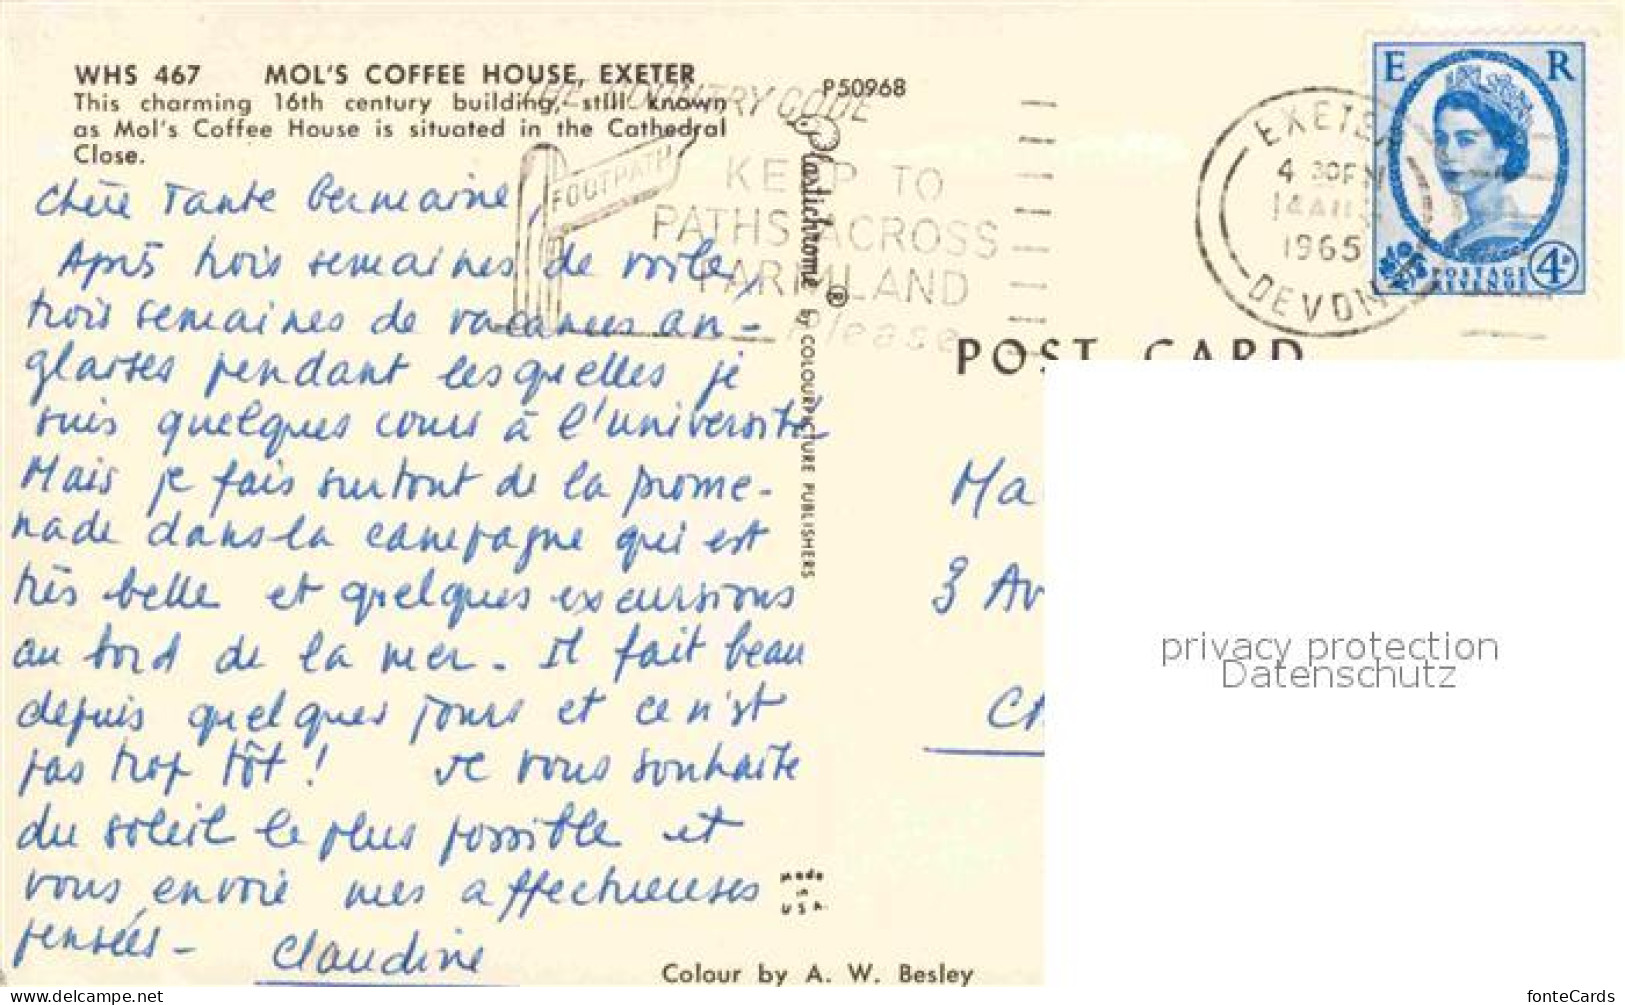 WHS 467 MOL'S COFFEE HOUSE, EXETER
This charming 16th century building, still known
as Mol's Coffee House is situated in the Cathedral
Close.
P50968
Chère Tante Germaine,
Après trois semaines de voile,
trois semaines de vacances an-
glaises pendant lesquelles je
suis quelques cours à l'université
Mais je fais surtout de la prome-
nade dans la campagne qui est
très belle et quelques excursions
au bord de la mer. Il fait beau
depuis quelques jours et ce n'est
pas trop tôt! Je vous souhaite
du soleil le plus possible et
vous envoie mes affectueuses
pensées -
Claudine
Plastichrome ® by COLOURPICTURE PUBLISHERS
Made
in
USA.
Colour by A. W. Besley
THE COUNTRY CODE
FOOTPATH
KEEP TO
PATHS ACROSS
FARMLAND
Please
EXETER
4 30PM
1965
DEVON
E R
POSTAGE
REVENUE
4D
POST CARD
Ma
3 Av
privacy protection
Datenschutz
www.delcampe.net
fonteCards